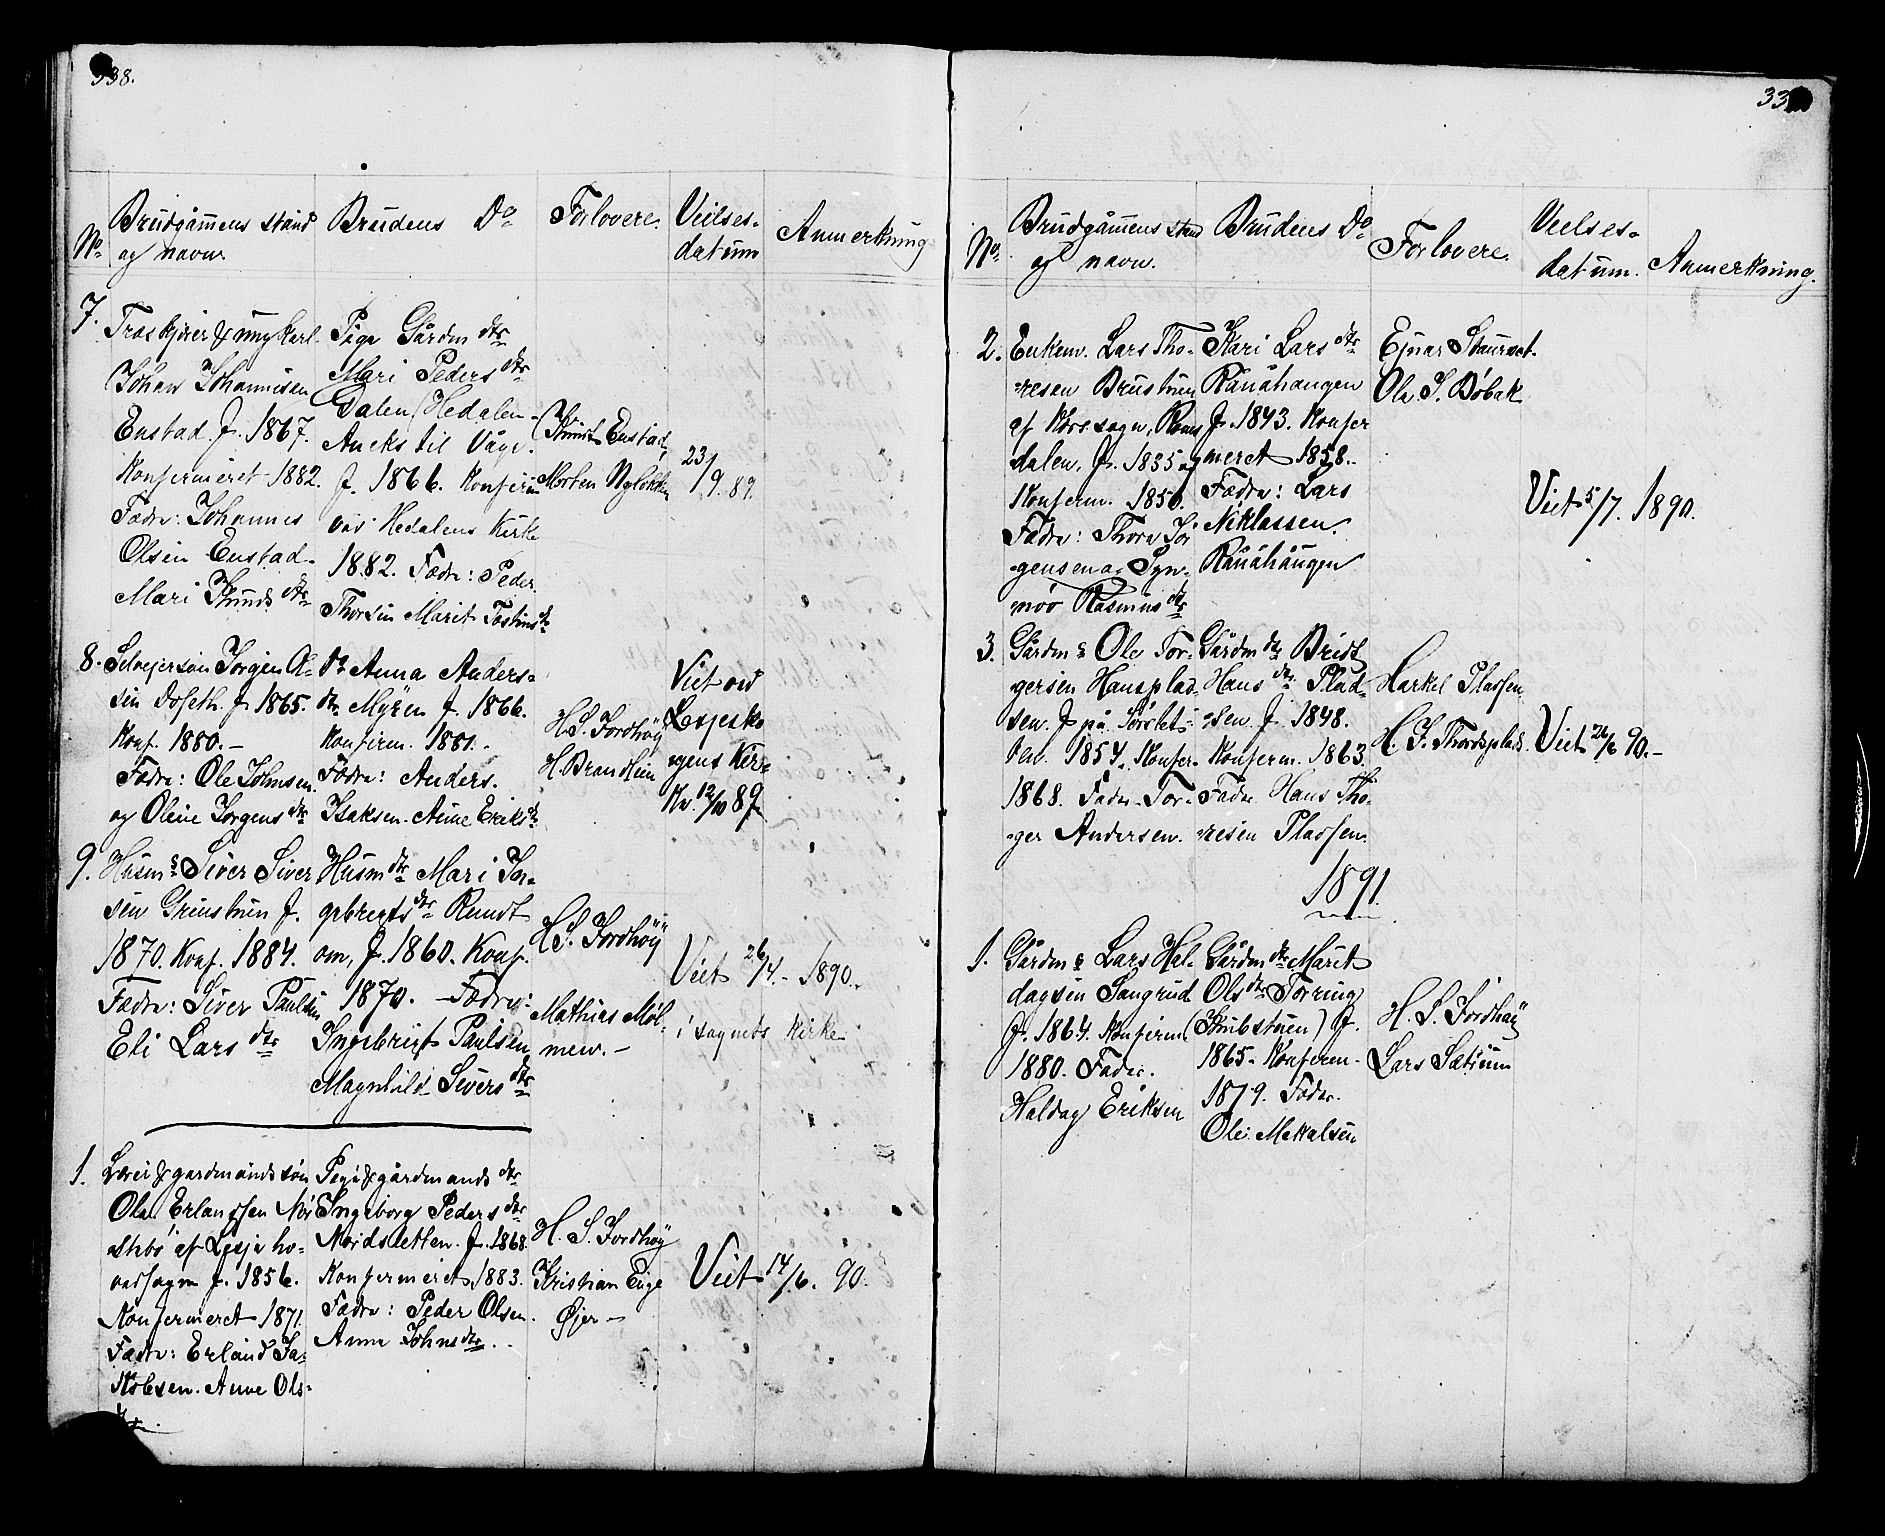 338.
No.
Brudgammens stand
og navn.
Brudens Do
Forlovere.
Vielses-
datum
Anmerkning.
7.
Træskjærer & ungkarl
Johan Johannesen
Enstad f. 1867.
Konfermeret 1882.
Fædre: Johannes
Olsen Enstad-
Mari Knuds dtr
Pige Gårdm dtr
Mari Peders dtr
Dalen (Hedalen-
Aneks til Våge.
f. 1866. Konferm
ved Hedalens Kirke
1882. Fædre: Peder
Thorsen Marit Tostens dtr
Knut Enstad,
Morten Nyløkken
23/9. 89.
8.
Selvejersøn Jørgen Ol-
sen Doseth. f. 1865.
Konf. 1880.-
Fædre: Ole Johnsen.
og Oline Jørgens dtr
Anna Anders-
dtr Myren f. 1866.
Konferm. 1881.-
Fædre: Anders.
Isaksen. Anne Eriks dtr
H. S. Jordhøÿ
H. Brandlien
Viet ved
Lesjesko
gens Kir-
ke. 12/10 89
9.
Husm s Siver Siver
sen Grinstuen f.
1870. Konf. 1884.
Fædre: Siver Paulsen
Eli Lars dtr
Husm dtr Mari In-
gebregts dtr Rundt
om, f. 1860. Konf.
1870. - Fædre:
Ingebrigt Paulsen
Magnhild Sivers dtr
H S. Jordhøÿ
Mathias Møl-
men. -
Viet 26/4.- 1890.
i sognets kirke
1.
Lærer & gardmands søn
Ola Erlandsen Nør
stebø af Lesje ho-
vedsogn f. 1856.
Konfermeret 1871.
Fædre: Erland Ja-
kobsen. Anne Ols-
dtr.
Pige & gårdmands dtr
Ingeborg Peders dtr
Nordsletten. f. 1868.
Konfermeret 1883.
Fædre: Peder Olsen.
Anne Johns dtr.
H. S. Jordhøÿ
Kristian Enge
Øjer -
Viet 14/6. 90.
33
No.
Brudgammens stand
og navn.
Brudens Do
Forlovere.
Vielses-
datum.
Anmerkning.
2.
Enkem. Lars Tho-
resen Brustuen
af Kors sogn, Roms
dalen, f. 1835 og
Konferm. 1850.
Fædre: Thore Jør
gensen og Syn-
nøv Rasmus dtr
Kari Lars dtr
Rånåhaugen
f. 1843. Konfer
meret 1858.
Fædre: Lars
Niklassen.
Rånåhaugen
Ejnar Staurset.
Ola. S. Bøbak
Viet 5/7. 1890.
3.
Gårdm s Ole Tor-
gersen Hansplad-
sen. f. på
1854. Konfer-
1868. Fadr. Tor-
ger Andersen.
Gårdm dtr Brit
Hans dtr Plad-
sen. f. 1848.
Konferm. 1863.
Fadr Hans Tho-
resen Plassen.
Harkel Plassen.
H. J. Thordsplads
Viet 26/6 90.-
1891.
1.
Gårdm s Lars Hal-
dagsen Sangrud
f. 1864. Konferm
1880. Fader.
Haldag Eriksen
Gårdm dtr Marit
Ols dtr Torring
(Skubstuen) f.
1865. Konferm.
1879. Fader.
Ole. Mekalsen
H. S. Jordhøÿ
Lars Sætrum